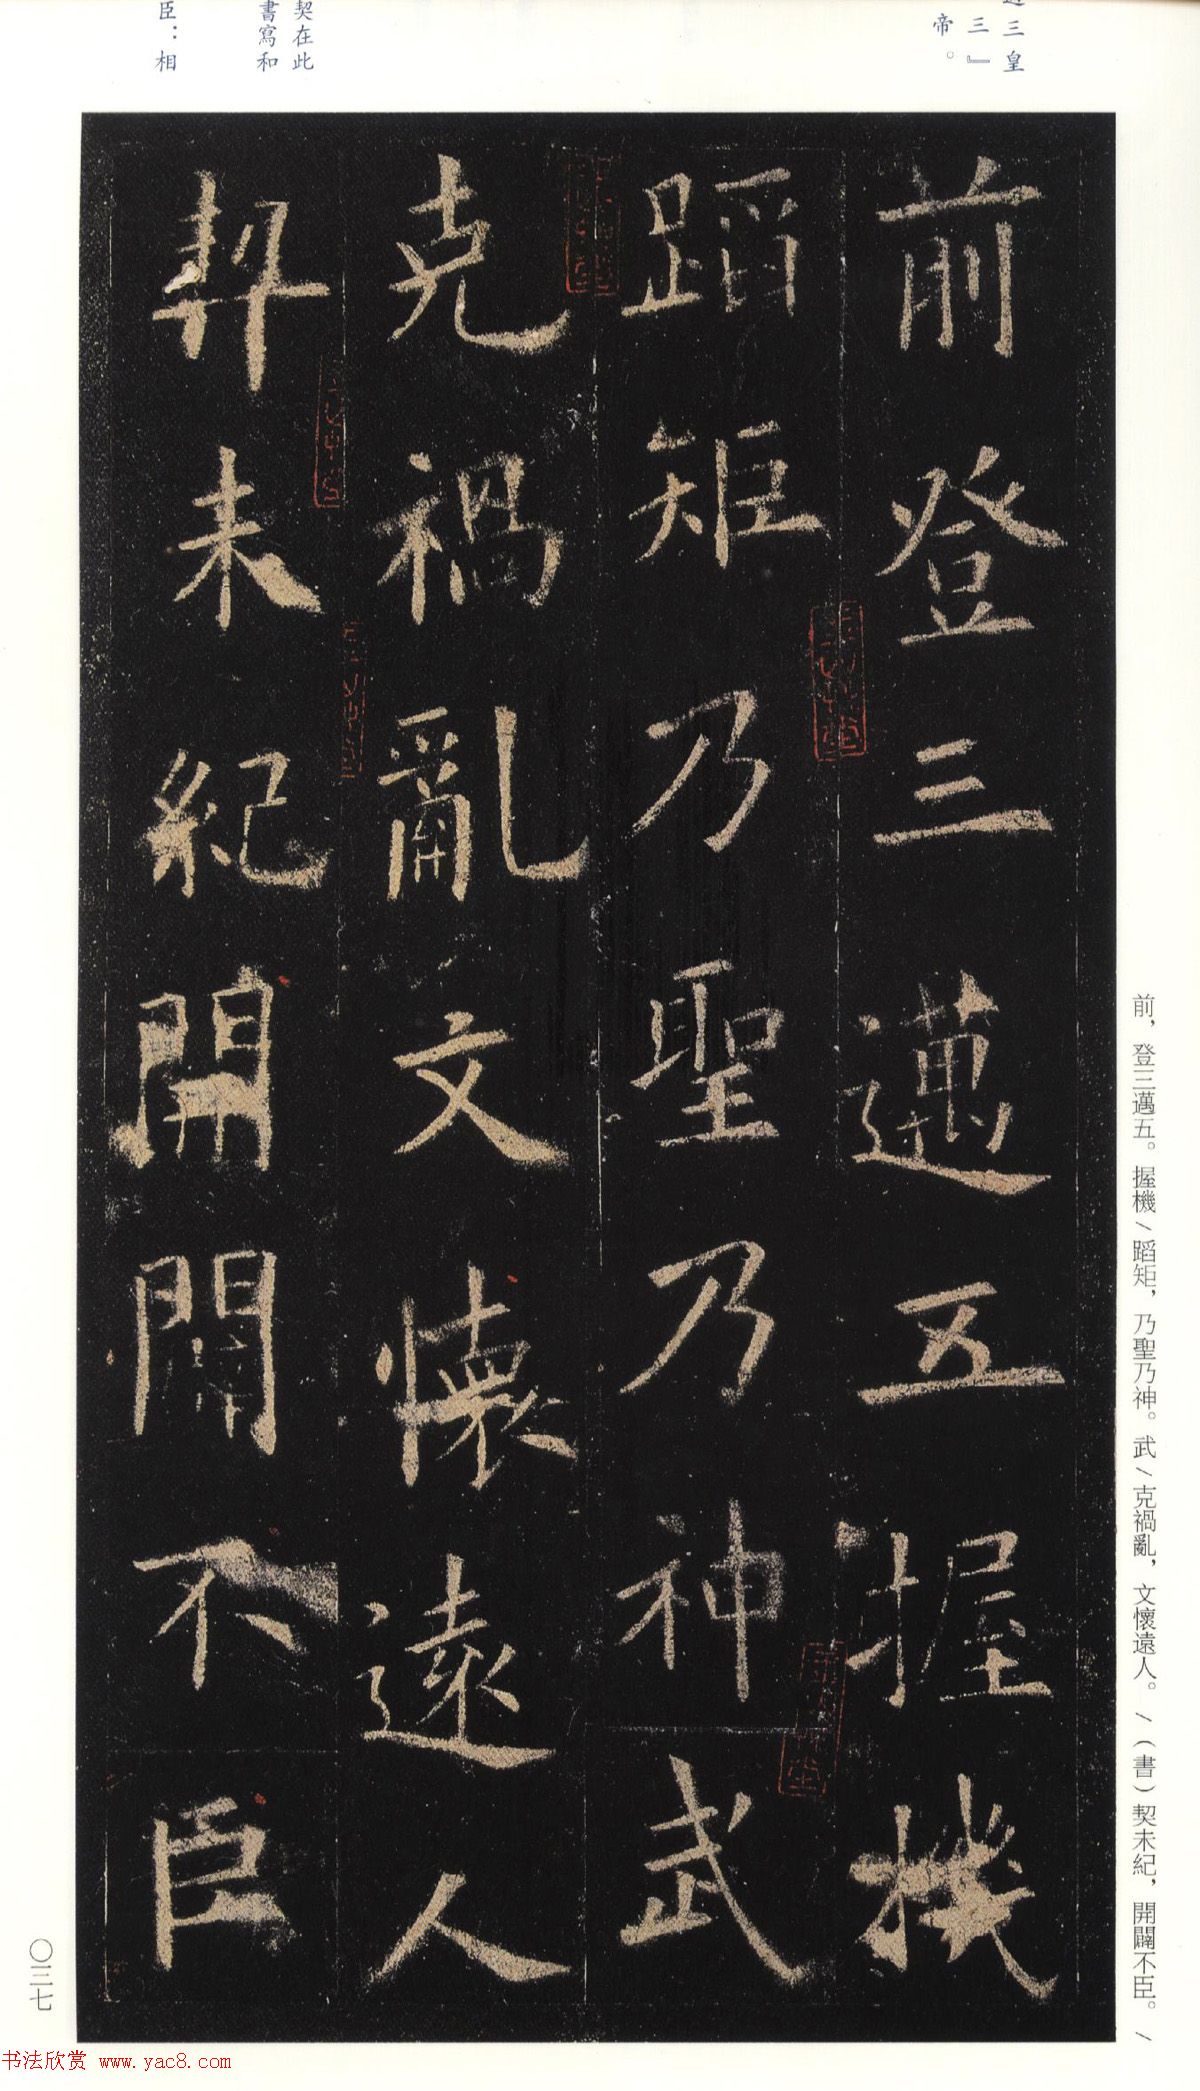 皇
三 三』
帝。
契在此
書寫和
臣：相
前登三邁五握機
蹈矩乃聖乃神武
克禍亂文懷遠人
契未紀開闢不臣
前，登三邁五。握機/蹈矩，乃聖乃神。武/克禍亂，文懷遠人。/（書）契未紀，開闢不臣。/
〇三七
书法欣赏 www.yac8.com